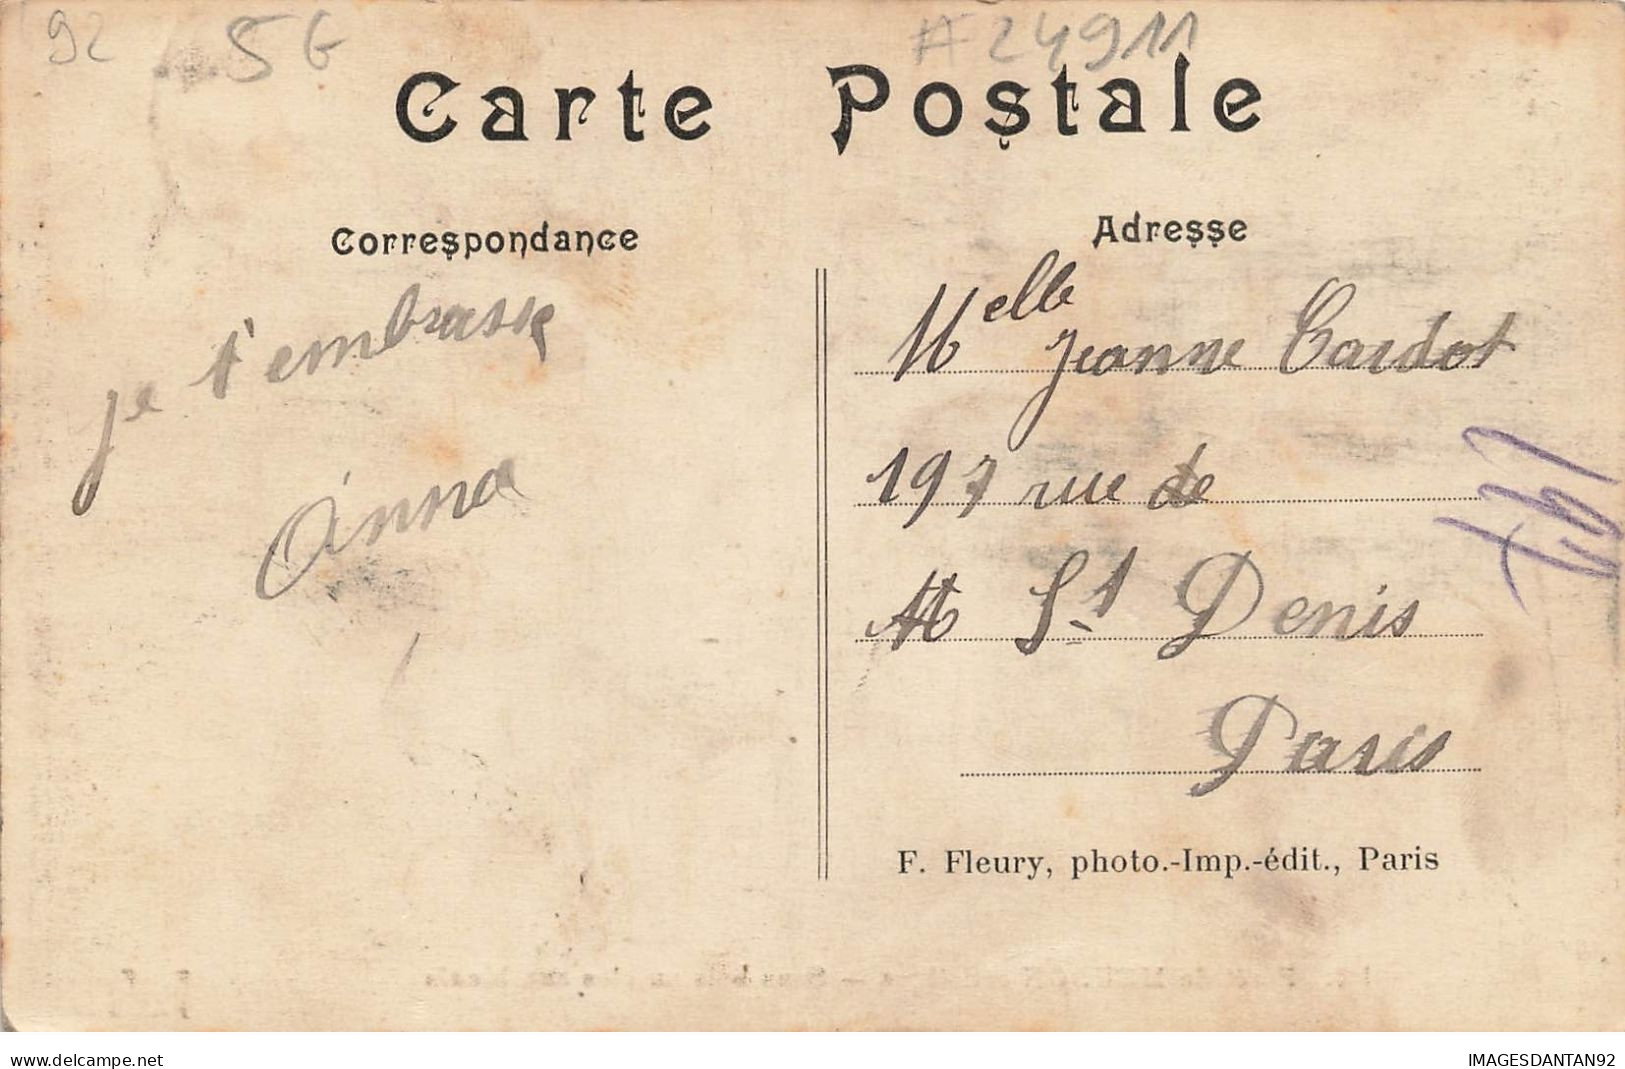 92 5G #24911
Carte Postale
Correspondance
Adresse
je t'embrasse
Anna
Melle Jeanne Cardot
197 rue de
St Denis
Paris
F. Fleury, photo.-Imp.-édit., Paris
IMAGESDANTAN92
www.delcampe.net